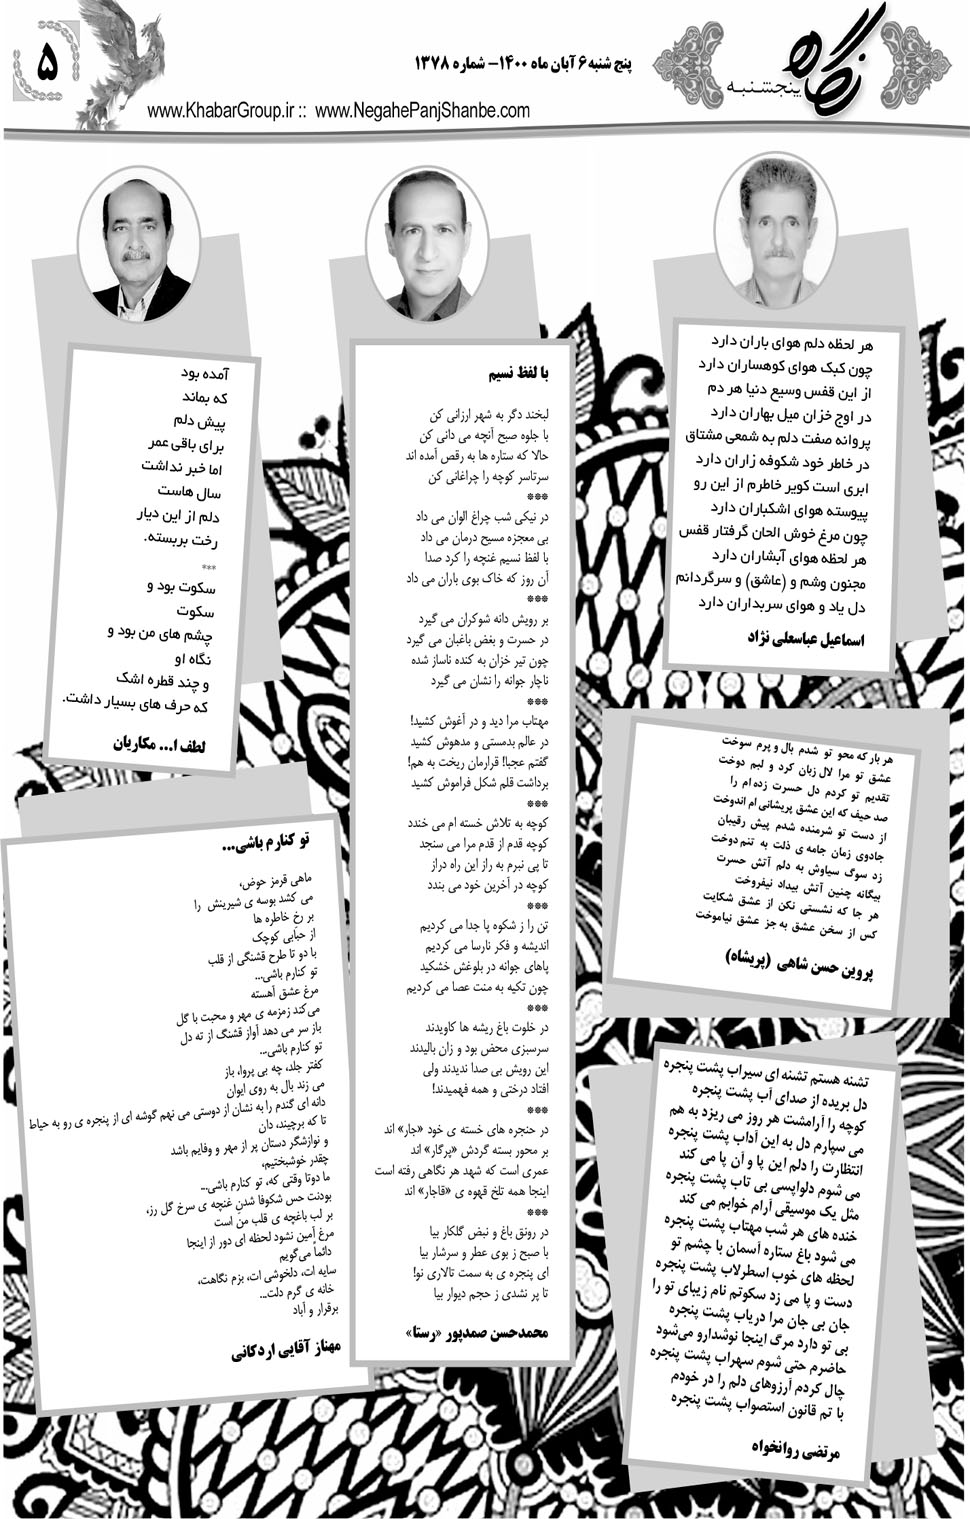 نگاه
پنجشنبه
پنج شنبه ۶ آبان ماه ۱۴۰۰- شماره ۱۳۷۸
www.KhabarGroup.ir :: www.NegahePanjShanbe.com
۵
هر لحظه دلم هوای باران دارد
چون کبک هوای کوهساران دارد
از این قفس وسیع دنیا هر دم
در اوج خزان میل بهاران دارد
پروانه صفت دلم به شمعی مشتاق
در خاطر خود شکوفه زاران دارد
ابری است کویر خاطرم از این رو
پیوسته هوای اشکباران دارد
چون مرغ خوش الحان گرفتار قفس
هر لحظه هوای آبشاران دارد
مجنون وشم و (عاشق) و سرگردانم
دل یاد و هوای سربداران دارد
اسماعیل عباسعلی نژاد
هر بار که محو تو شدم بال و پرم سوخت
عشق تو مرا لال زبان کرد و لبم دوخت
تقدیم تو کردم دل حسرت زده ام را
صد حیف که این عشق پریشانی ام اندوخت
از دست تو شرمنده شدم پیش رقیبان
جادوی زمان جامه ی ذلت به تنم دوخت
زد سوگ سیاوش به دلم آتش حسرت
بیگانه چنین آتش بیداد نیفروخت
هر جا که نشستی نکن از عشق شکایت
کس از سخن عشق به جز عشق نیاموخت
پروین حسن شاهی (پریشاه)
تشنه هستم تشنه ای سیراب پشت پنجره
دل بریده از صدای آب پشت پنجره
کوچه را آرامشت هر روز می ریزد به هم
می سپارم دل به این آداب پشت پنجره
انتظارت را دلم این پا و آن پا می کند
می شوم دلواپسی بی تاب پشت پنجره
مثل یک موسیقی آرام خوابم می کند
خنده های هر شب مهتاب پشت پنجره
می شود باغ ستاره آسمان با چشم تو
لحظه های خوب اسطرلاب پشت پنجره
دست و پا می زد سکوتم نام زیبای تو را
جان بی جان مرا دریاب پشت پنجره
بی تو دارد مرگ اینجا نوشدارو می‌شود
حاضرم حتی شوم سهراب پشت پنجره
چال کردم آرزوهای دلم را در خودم
با تم قانون استصواب پشت پنجره
مرتضی روانخواه
با لفظ نسیم
لبخند دگر به شهر ارزانی کن
با جلوه صبح آنچه می دانی کن
حالا که ستاره ها به رقص آمده اند
سرتاسر کوچه را چراغانی کن
***
در نیکی شب چراغ الوان می داد
بی معجزه مسیح درمان می داد
با لفظ نسیم غنچه را کرد صدا
آن روز که خاک بوی باران می داد
***
بر رویش دانه شوکران می گیرد
در حسرت و بغض باغبان می گیرد
چون تیر خزان به کنده ناساز شده
ناچار جوانه را نشان می گیرد
***
مهتاب مرا دید و در آغوش کشید!
در عالم بدمستی و مدهوش کشید
گفتم عجبا! قرارمان ریخت به هم!
برداشت قلم شکل فراموش کشید
***
کوچه به تلاش خسته ام می خندد
کوچه قدم از قدم مرا می سنجد
تا پی نبرم به راز این راه دراز
کوچه در آخرین خود می بندد
***
تن را ز شکوه پا جدا می کردیم
اندیشه و فکر نارسا می کردیم
پاهای جوانه در بلوغش خشکید
چون تکیه به منت عصا می کردیم
***
در خلوت باغ ریشه ها کاویدند
سرسبزی محض بود و زان بالیدند
این رویش بی صدا ندیدند ولی
افتاد درختی و همه فهمیدند!
***
در حنجره های خسته ی خود «جار» اند
بر محور بسته گردش «پرگار» اند
عمری است که شهد هر نگاهی رفته است
اینجا همه تلخ قهوه ی «قاجار» اند
***
در رونق باغ و نبض گلکار بیا
با صبح ز بوی عطر و سرشار بیا
ای پنجره ی به سمت تالاری نو!
تا پر نشدی ز حجم دیوار بیا
محمدحسن صمدپور «رستا»
آمده بود
که بماند
پیش دلم
برای باقی عمر
اما خبر نداشت
سال هاست
دلم از این دیار
رخت بربسته.
***
سکوت بود و
سکوت
چشم های من بود و
نگاه او
و چند قطره اشک
که حرف های بسیار داشت.
لطف ا... مکاریان
تو کنارم باشی...
ماهی قرمز حوض،
می کشد بوسه ی شیرینش را
بر رخ خاطره ها
از حبابی کوچک
با دو تا طرح قشنگی از قلب
تو کنارم باشی...
مرغ عشق آهسته
می‌کند زمزمه ی مهر و محبت با گل
باز سر می دهد آواز قشنگ از ته دل
تو کنارم باشی...
کفتر جلد، چه بی پروا، باز
می زند بال به روی ایوان
دانه ای گندم را به نشان از دوستی می نهم گوشه ای از پنجره ی رو به حیاط
تا که برچیند، دان
و نوازشگر دستان پر از مهر و وفایم باشد
چقدر خوشبختیم،
ما دوتا وقتی که، تو کنارم باشی...
بودنت حس شکوفا شدن غنچه ی سرخ گل رز،
بر لب باغچه ی قلب من است
مرغ آمین نشود لحظه ای دور از اینجا
دائما می‌گویم
سایه ات، دلخوشی ات، بزم نگاهت،
خانه ی گرم دلت...
برقرار و آباد
مهناز آقایی اردکانی